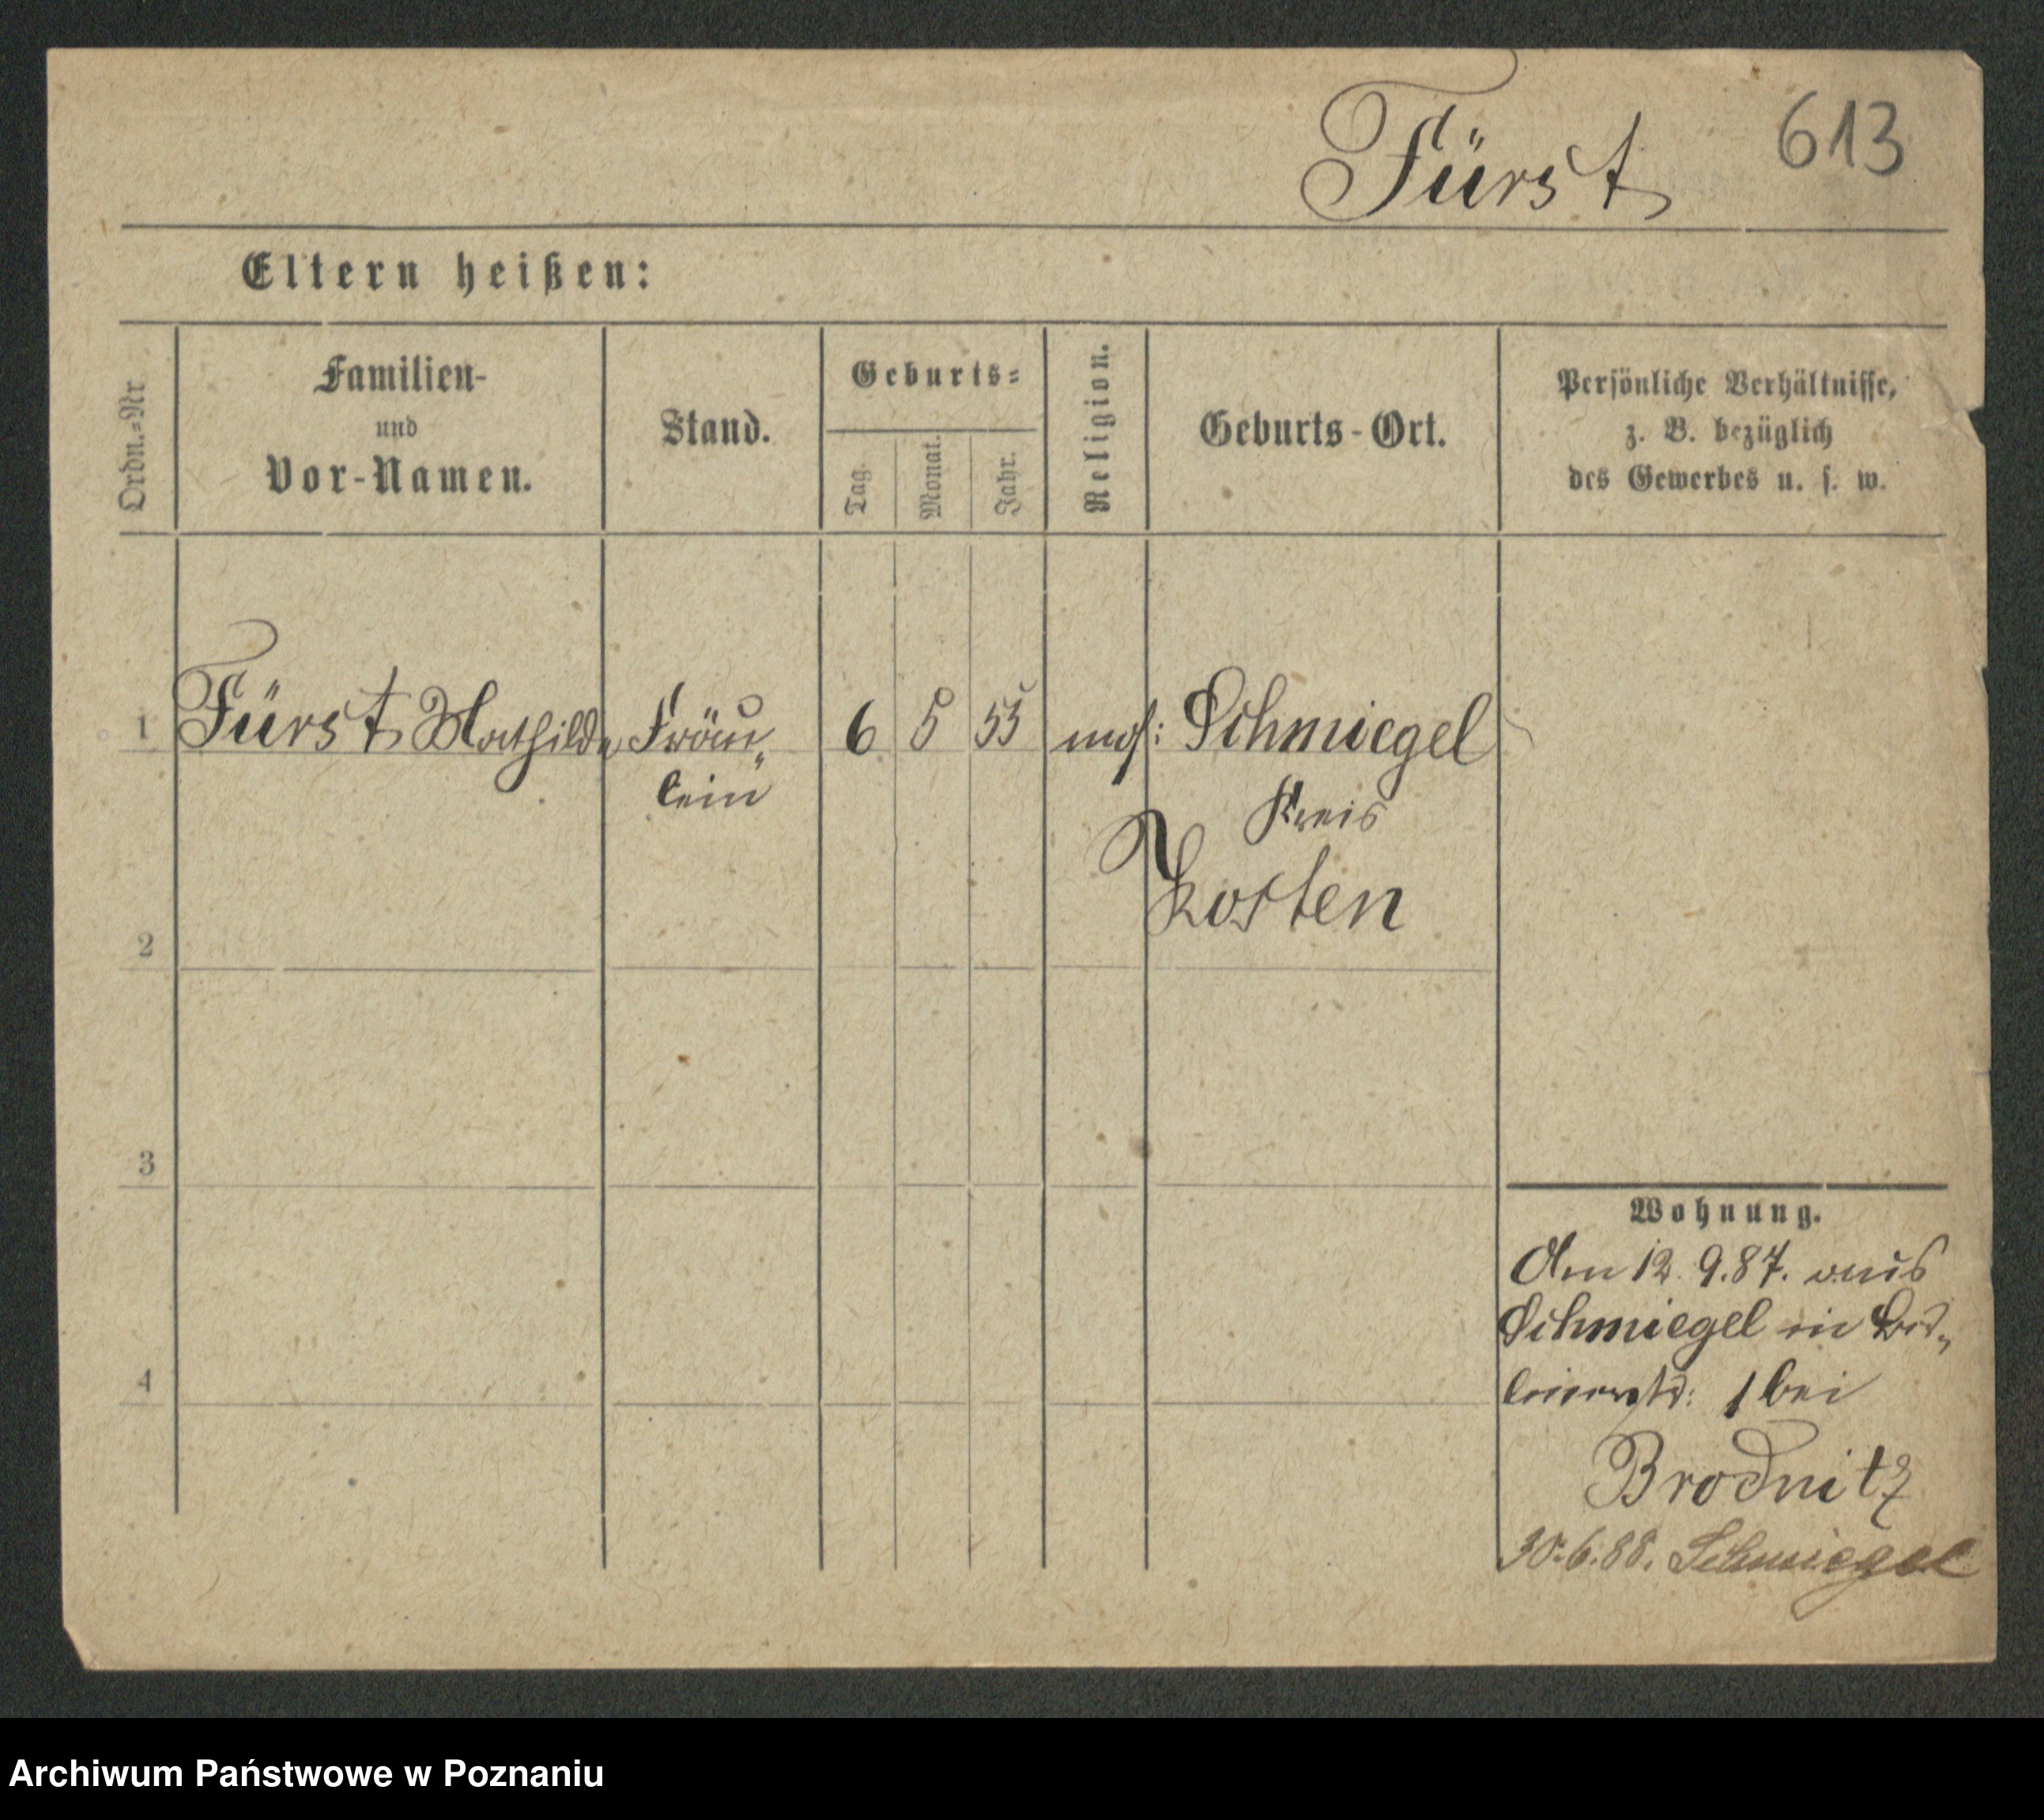 Fürst 613
Eltern heißen:
Ordn.-Nr
Familien-
und
Vor-Namen.
Stand.
Geburts-
Tag.
Monat.
Jahr.
Religion.
Geburts-Ort.
Persönliche Verhältnisse,
z. B. bezüglich
des Gewerbes u. s. w.
1 Fürst Mathilde Fräu- 6 5 53 mos: Schmiegel
lein
Kreis
Kosten
2
3
4
Wohnung.
Am 12. 9. 87. aus
Schmiegel in
1 bei
Brodnitz
30.6.88. Schmiegel
Archiwum Państwowe w Poznaniu